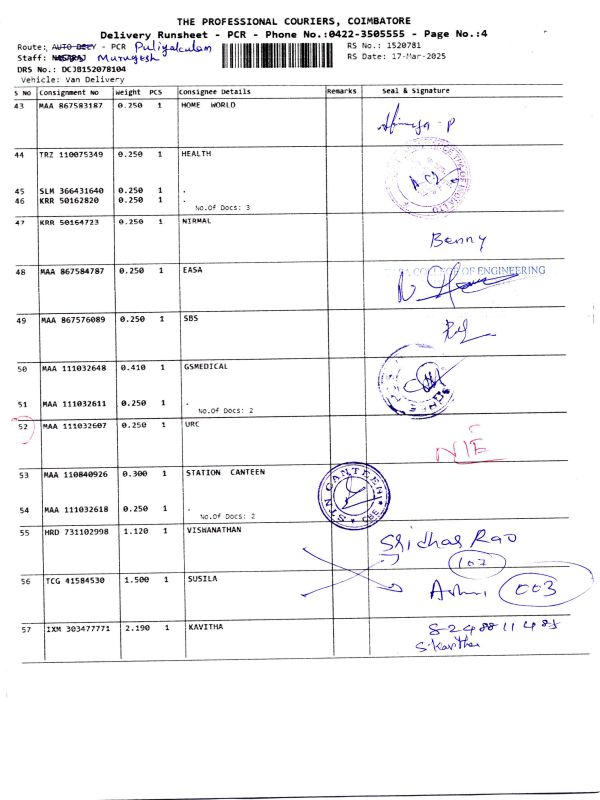 THE PROFESSIONAL COURIERS, COIMBATORE
Delivery Runsheet - PCR - Phone No.:0422-3505555 - Page No.:4
Route: AUTO DELY - PCR Puliyakulam
RS No.: 1520781
Staff: Murugesh
RS Date: 17-Mar-2025
DRS No.: DCJB152078104
Vehicle: Van Delivery
S No Consignment No Weight PCS Consignee Details Remarks Seal & Signature
43 MAA 867583187 0.250 1 HOME WORLD
44 TRZ 110075349 0.250 1 HEALTH
45 SLM 366431640 0.250 1 .
46 KRR 50162820 0.250 1 .
No.Of Docs: 3
47 KRR 50164723 0.250 1 NIRMAL
Benny
48 MAA 867584787 0.250 1 EASA
COLLEGE OF ENGINEERING
49 MAA 867576089 0.250 1 SBS
50 MAA 111032648 0.410 1 GSMEDICAL
51 MAA 111032611 0.250 1 .
No.Of Docs: 2
52 MAA 111032607 0.250 1 URC
NIE
53 MAA 110840926 0.300 1 STATION CANTEEN
STN CANTEEN
CBE
54 MAA 111032618 0.250 1 .
No.Of Docs: 2
55 HRD 731102998 1.120 1 VISWANATHAN
Sridhar Rao
102
56 TCG 41584530 1.500 1 SUSILA
003
57 IXM 303477771 2.190 1 KAVITHA
8248811485
S.Kavitha